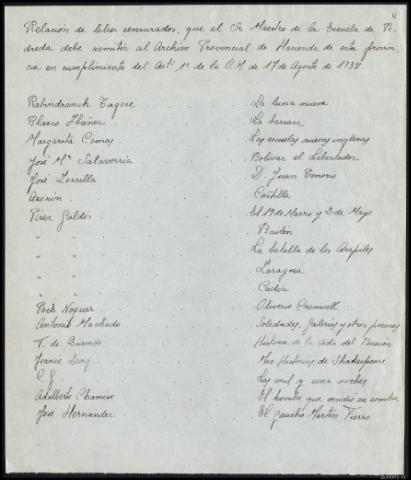 4
Relación de libros censurados, que el Sr Maestro de la Escuela de Pe-
dreda debe remitir al Archivo Provincial de Hacienda de esta provin-
cia en cumplimiento del Artº 1º de la O.M. de 17 de Agosto de 1938.
Rabindranah Tagore La luna nueva
Blasco Ibáñez La barraca
Margarita Comas Las escuelas nuevas inglesas
José Mª Salaverria Bolivar el Libertador
José Zorrilla D. Juan Tenorio
Azorin Castilla
Pérez Galdós El 19 de Marzo y 2 de Mayo
" " Bailén
" " La batalla de los Arapiles
" " Zaragoza
" " Cadiz
Poch Noguer Oliverio Cromwell
Antonio Machado Soledades, Galerías y otros poemas
F. de Quevedo Historia de la vida del Buscón
Jeanie Lang Mis Historias de Shakespeare
C. G. Las mil y una noches
Adalberto Chamiso El hombre que vendió su sombra
José Hernandez El gaucho Martín Fierro